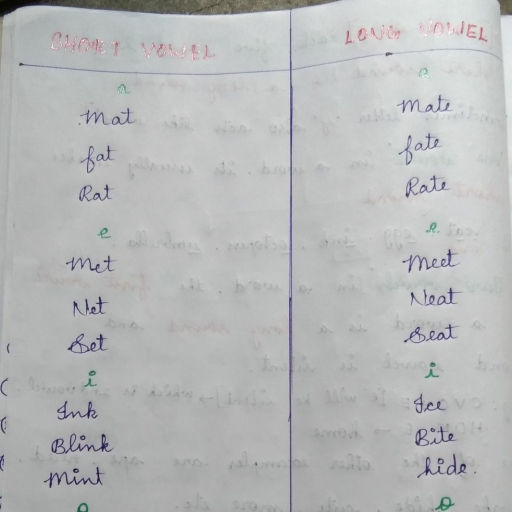 SHORT VOWEL LONG VOWEL
a a
Mat Mate
fat fate
Rat Rate
e e
Met Meet
Net Neat
Set Seat
i i
Ink Ice
Blink Bite
Mint hide.
o o